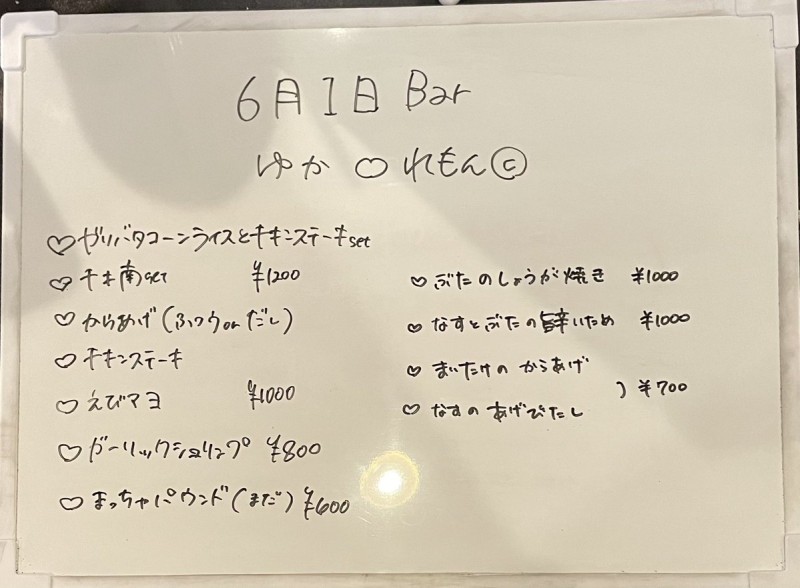 6月1日 Bar
ゆか♡れもん©
♡ガリバタコーンライスとチキンステーキset
♡チキ南set ¥1200
♡からあげ(ふつうorだし)
♡チキンステーキ
♡えびマヨ ¥1000
♡ガーリックシュリンプ ¥800
♡まっちゃパウンド(まだ) ¥600
♡ぶたのしょうが焼き ¥1000
♡なすとぶたの旨辛いため ¥1000
♡まいたけのからあげ
♡なすのあげびたし ) ¥700